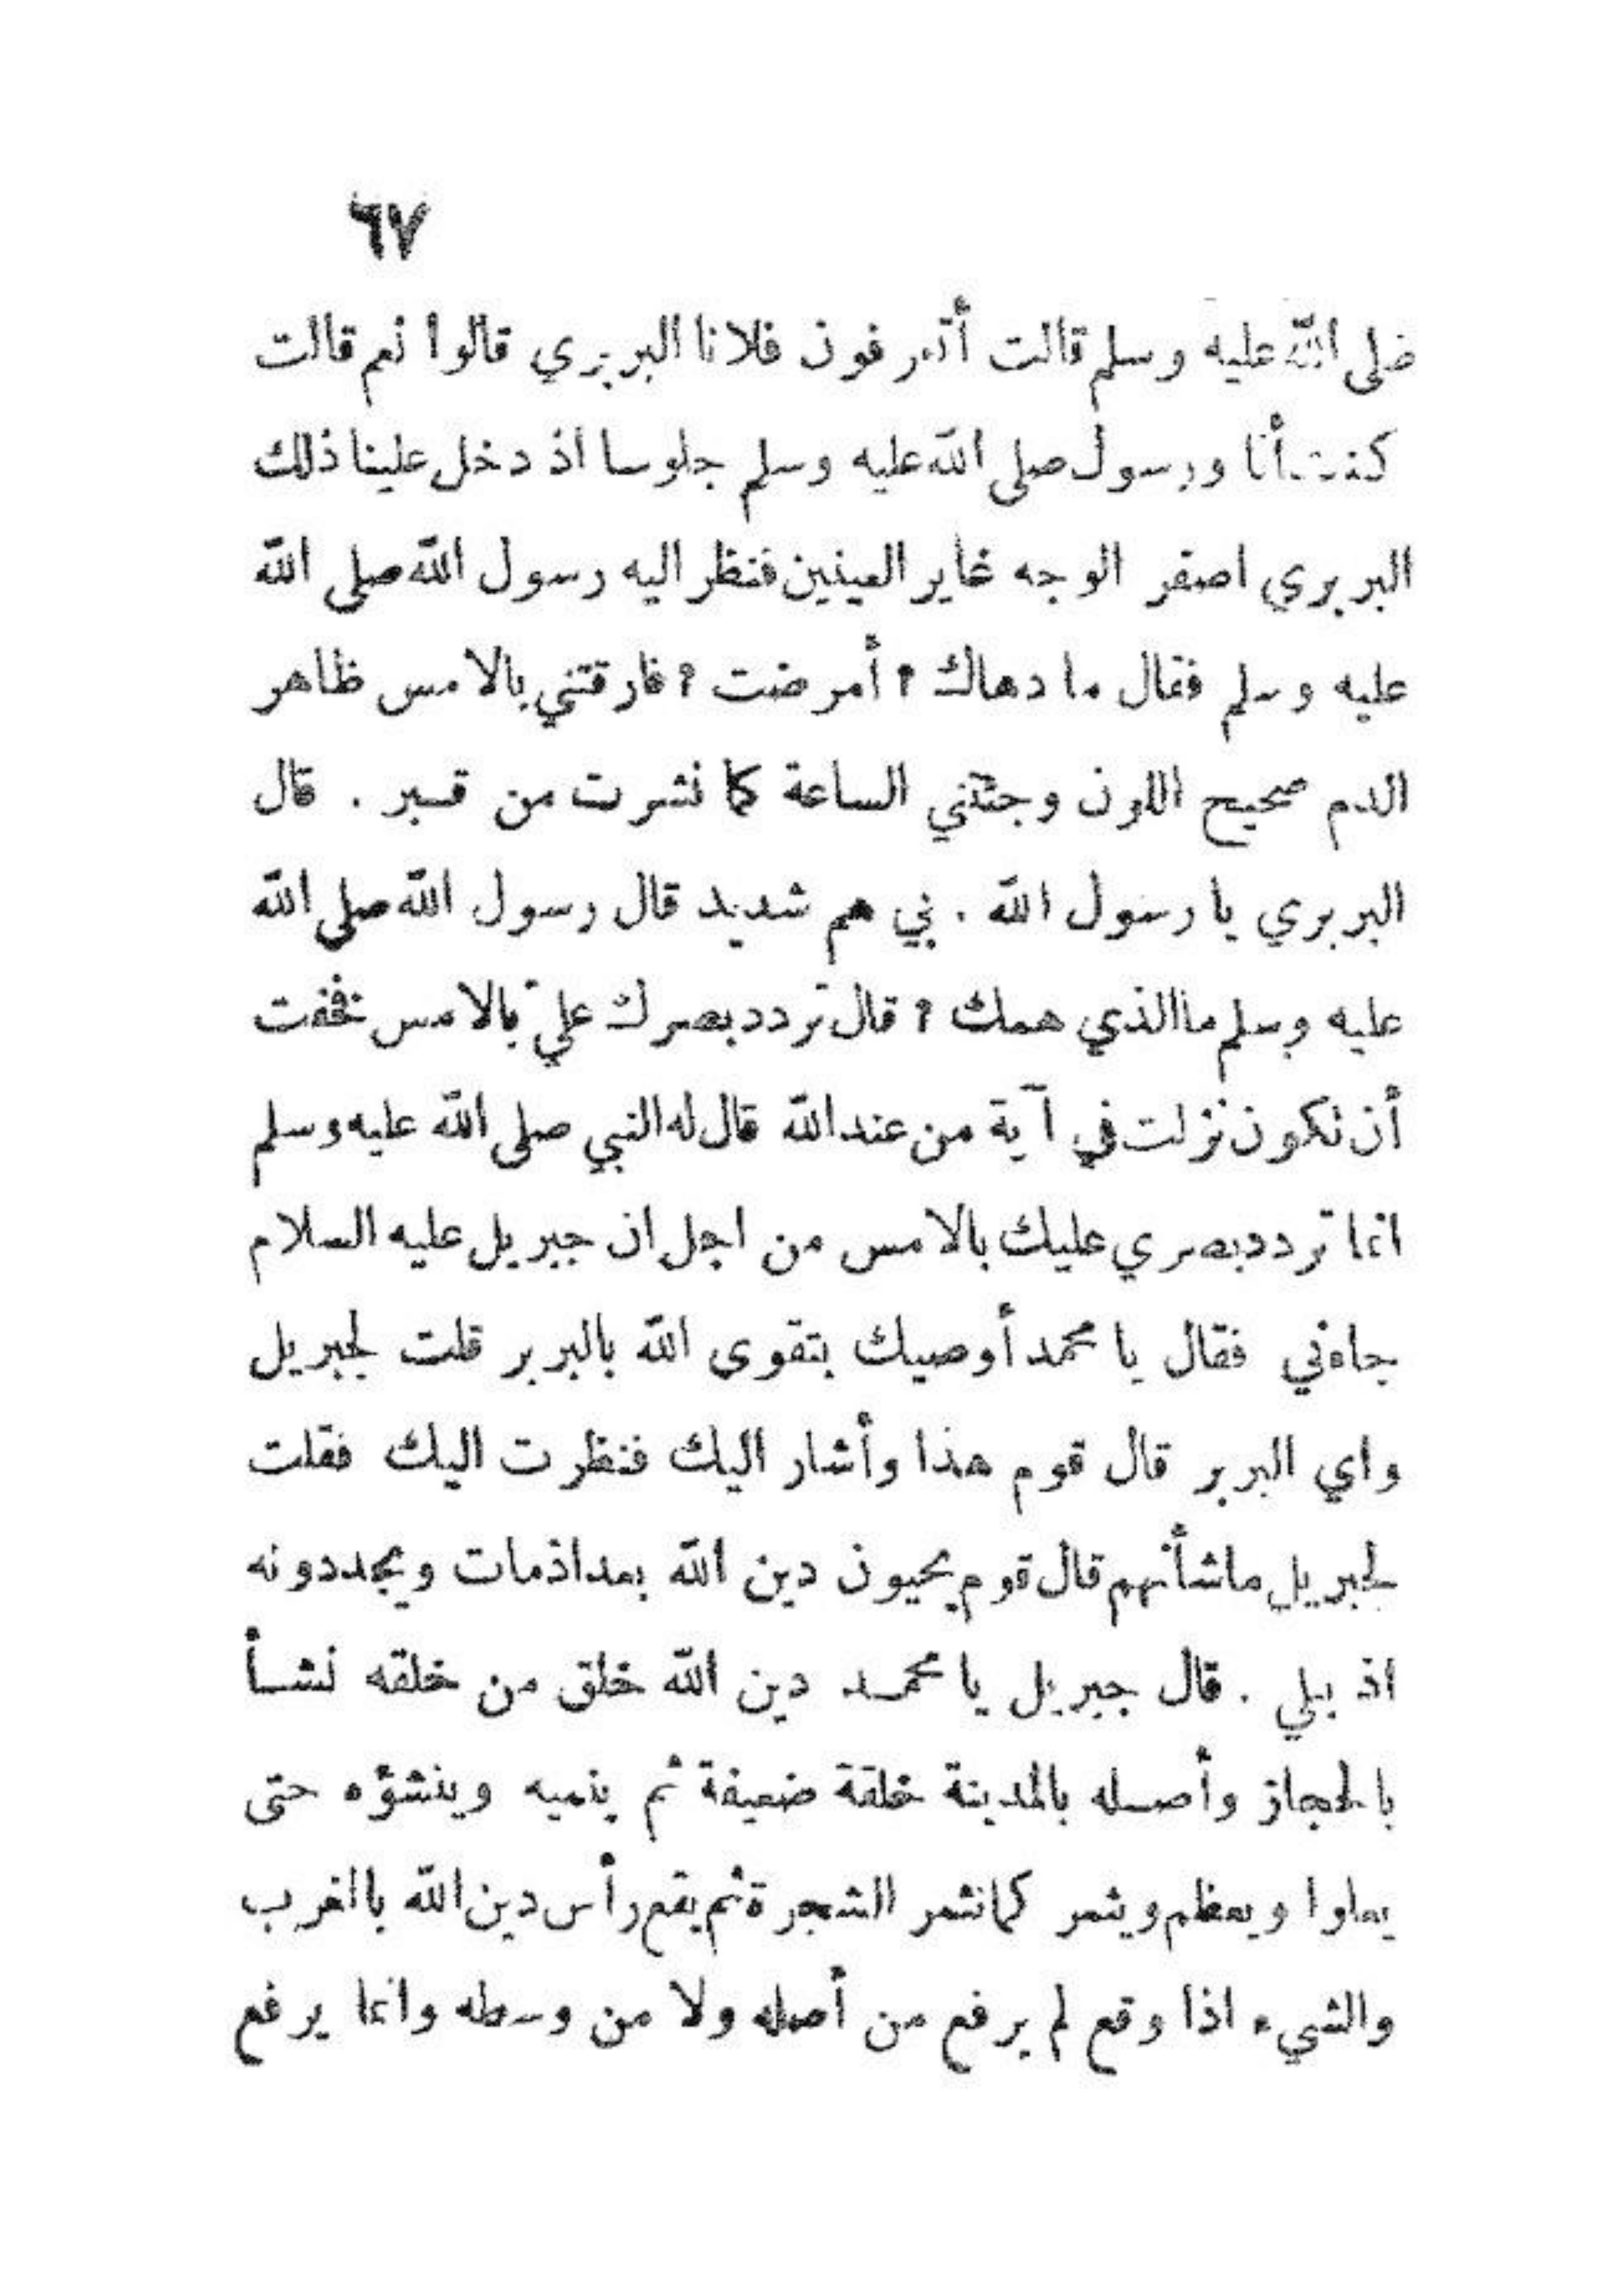 ٦٧
صلى الله عليه وسلم قالت أتعرفون فلانا البربري قالوا نعم قالت
كنت أنا ورسول صلى الله عليه وسلم جلوسا اذ دخل علينا ذلك
البربري اصفر الوجه غاير العينين فنظر اليه رسول الله صلى الله
عليه وسلم فقال ما دهاك ؟ أمرضت ؟ فارقتني بالامس ظاهر
الدم صحيح اللون وجئتني الساعة كما نشرت من قبر . قال
البربري يا رسول الله . بي هم شديد قال رسول الله صلى الله
عليه وسلم ما الذي همك ؟ قال تردد بصرك عليّ بالامس فخفت
أن تكون نزلت في آية من عند الله قال له النبي صلى الله عليه وسلم
انما تردد بصري عليك بالامس من اجل ان جبريل عليه السلام
جاءني فقال يا محمد أوصيك بتقوى الله بالبربر قلت لجبريل
واي البربر قال قوم هذا وأشار اليك فنظرت اليك فقلت
لجبريل ما شأنهم قال قوم يحيون دين الله بعد اذ مات ويجددونه
اذ بلي . قال جبريل يا محمد دين الله خلق من خلقه نشأ
بالحجاز وأصله بالمدينة خلقة ضعيفة ثم ينميه وينشؤه حتى
يعلوا ويعظم ويثمر كما تثمر الشجرة ثم يقع رأس دين الله بالغرب
والشيء اذا وقع لم يرفع من أصله ولا من وسطه وانما يرفع